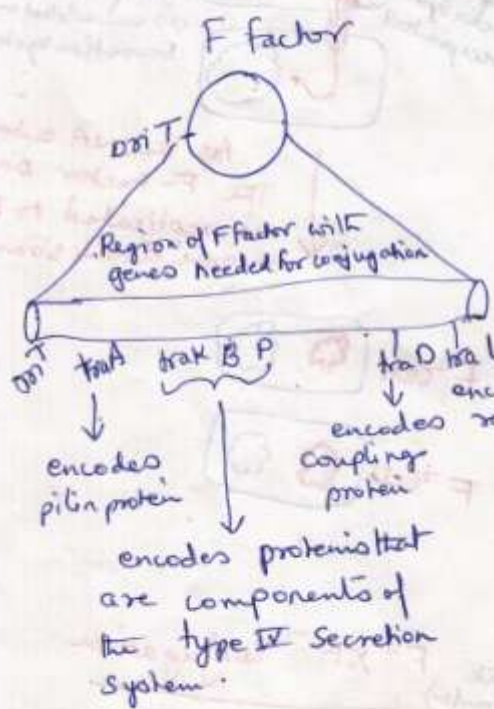 F factor
Ori T
Region of F factor with
genes needed for conjugation
Ori T
traA
trak B P
traD
tra
encodes
pilin protein
encodes
coupling
protein
encodes proteins that
are components of
the type IV secretion
system.